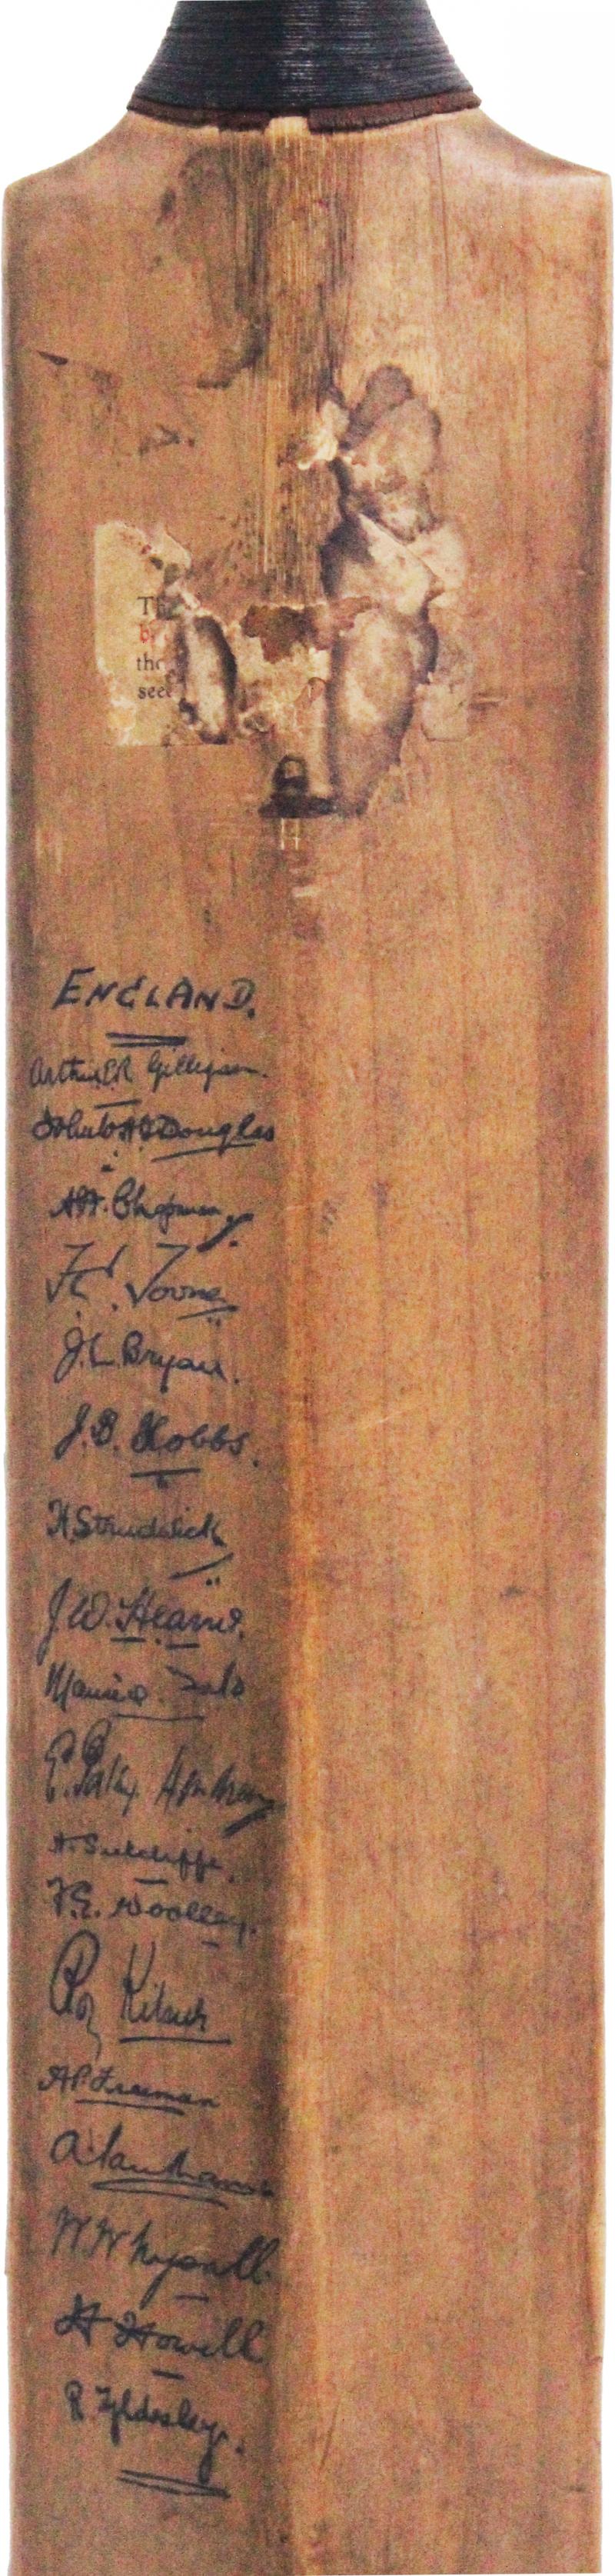 Th
b
the
see
ENGLAND.
Arthur E R Gilligan.
John W H T Douglas
A.P.F. Chapman.
F.C. Toone
J.L. Bryan.
J.B. Hobbs.
H. Strudwick
J.W. Hearne.
Maurice Tate
E. Patsy Hendren
H. Sutcliffe.
F.E. Woolley.
Roy Kilner
A P Freeman
A. Sandham
W W Whysall.
H Howell
R Tyldesley.